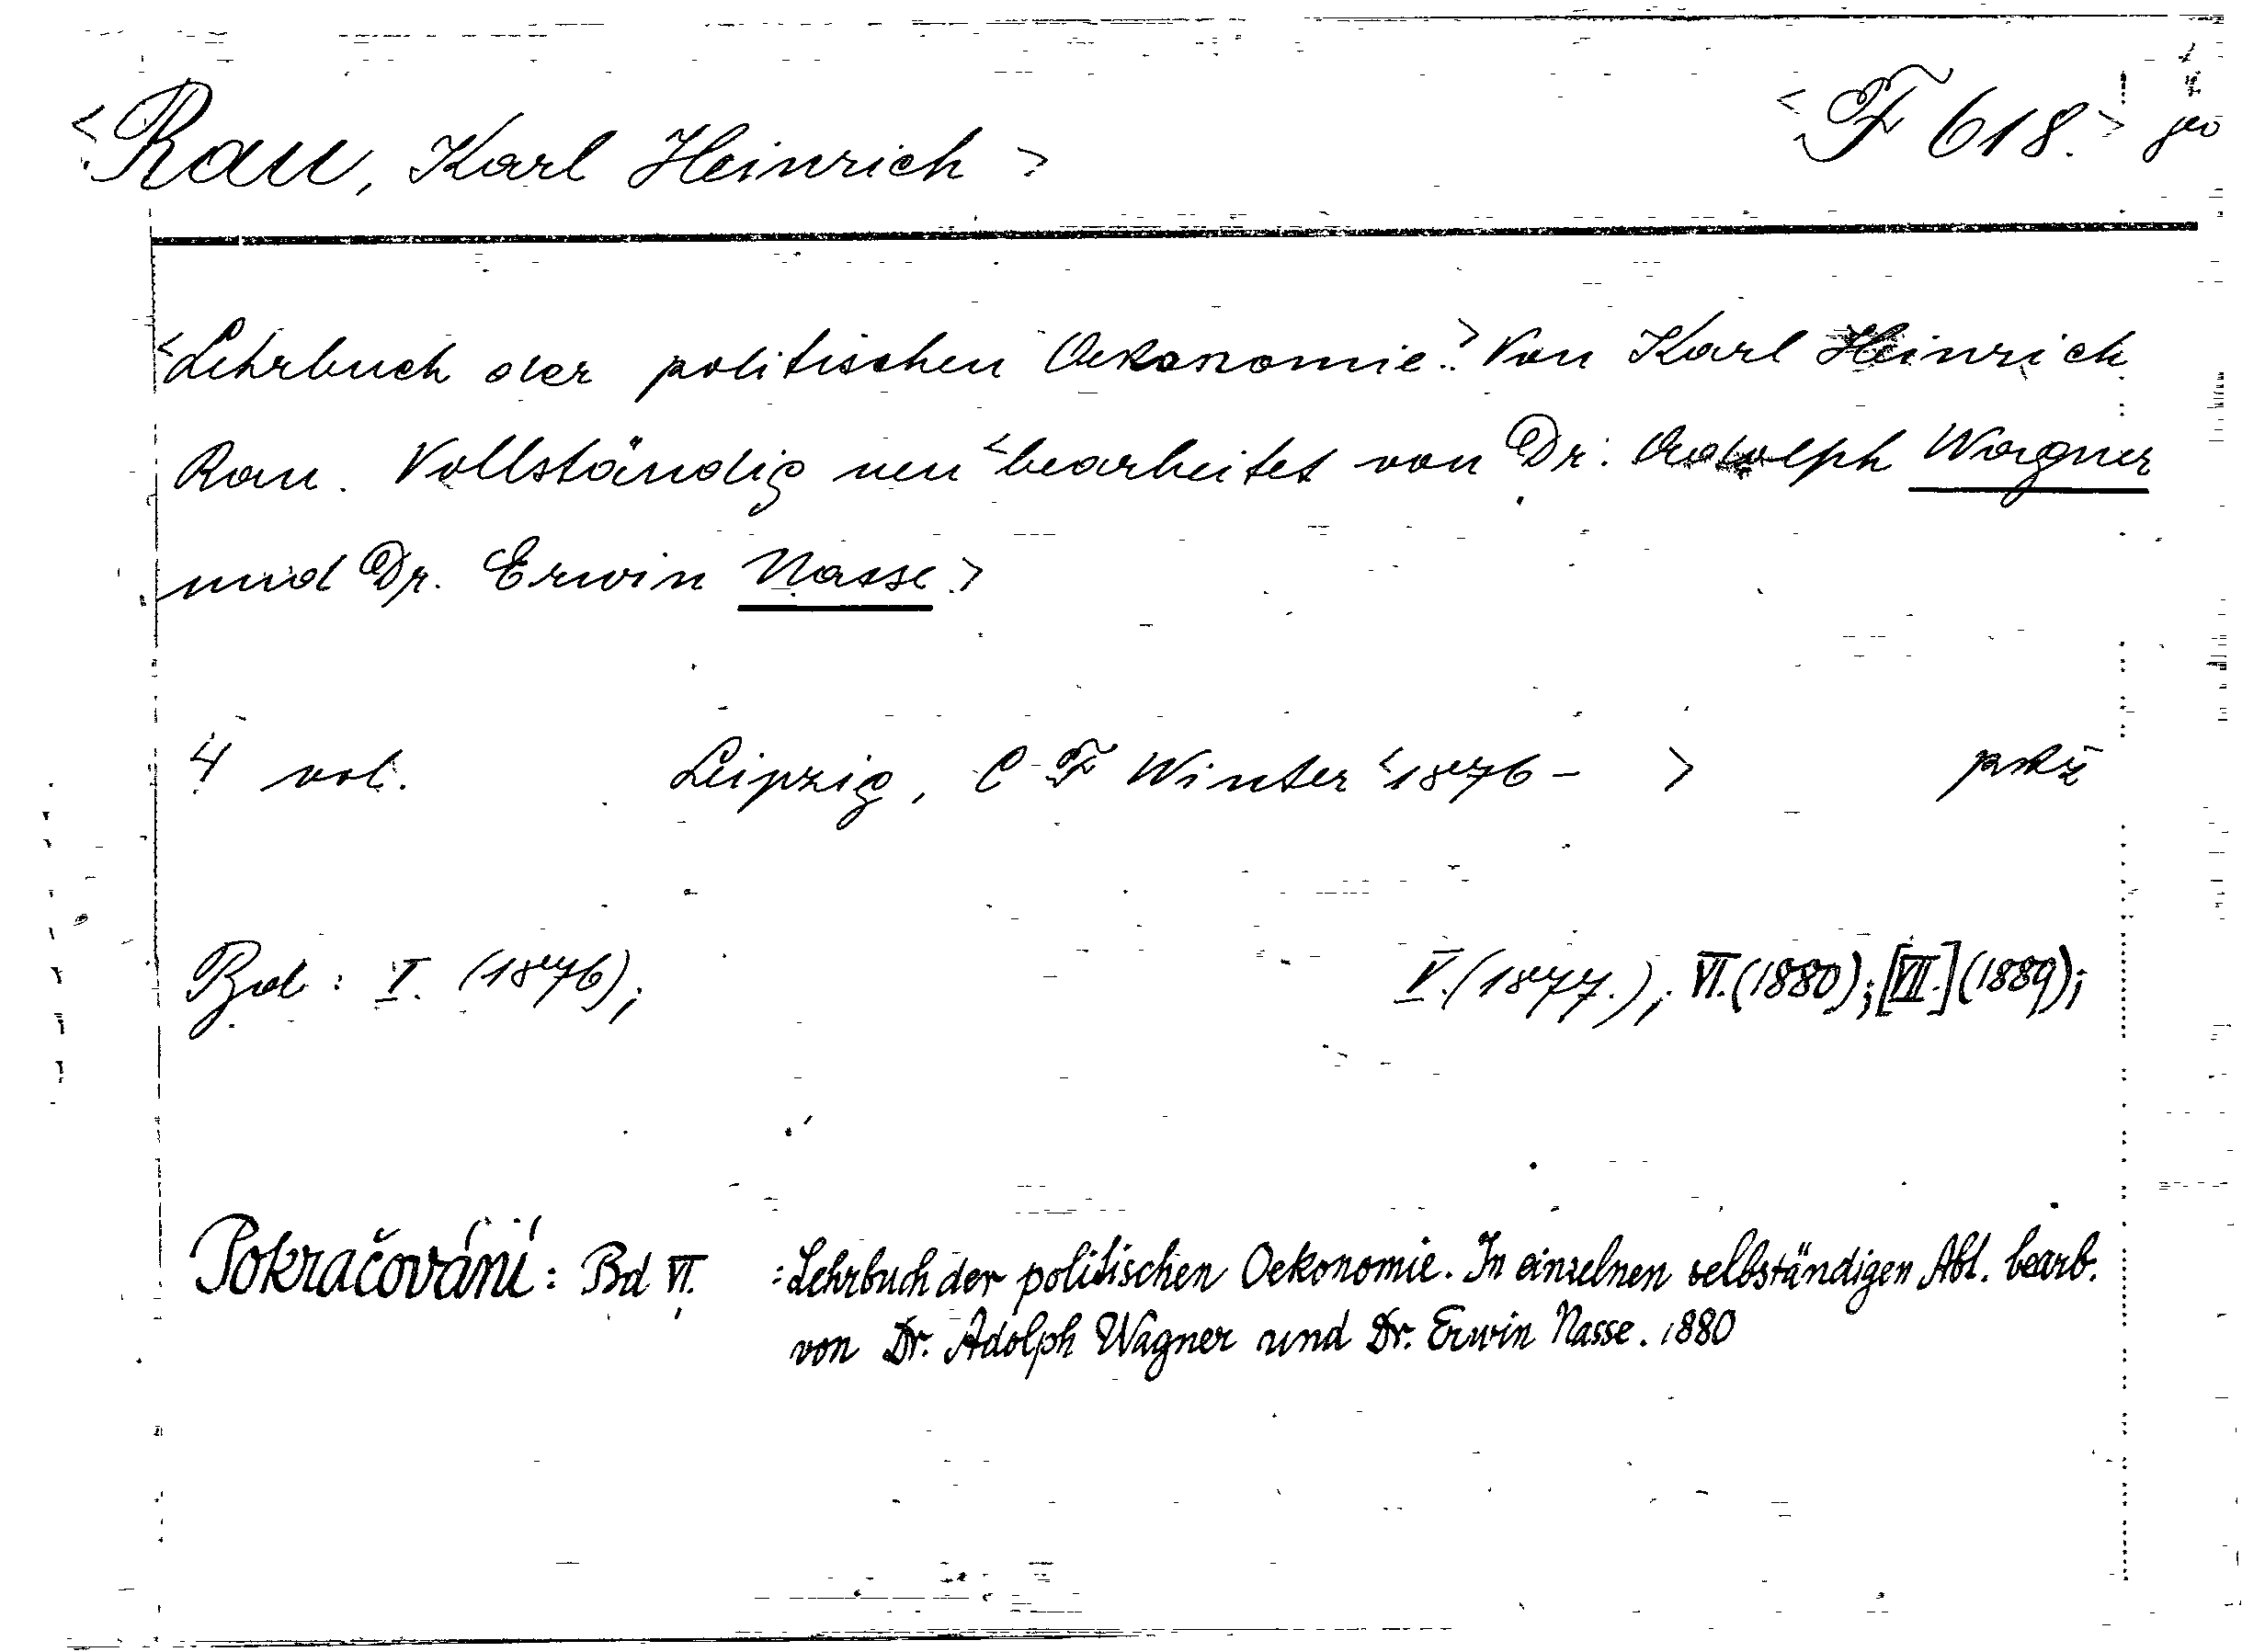 <Rau, Karl Heinrich> <F 618.>
<Lehrbuch der politischen Oekonomie.> Von Karl Heinrich
Rau. Vollständig neu <bearbeitet von Dr. Adolph Wagner
und Dr. Erwin Nasse.>
4 vol. Leipzig, C F Winter <1876- >
Bd: I. (1876); V. (1877.); VI. (1880); [VII.] (1889);
Pokračování: Bd VI. : Lehrbuch der politischen Oekonomie. In einzelnen selbständigen Abt. bearb.
von Dr. Adolph Wagner und Dr. Erwin Nasse. 1880